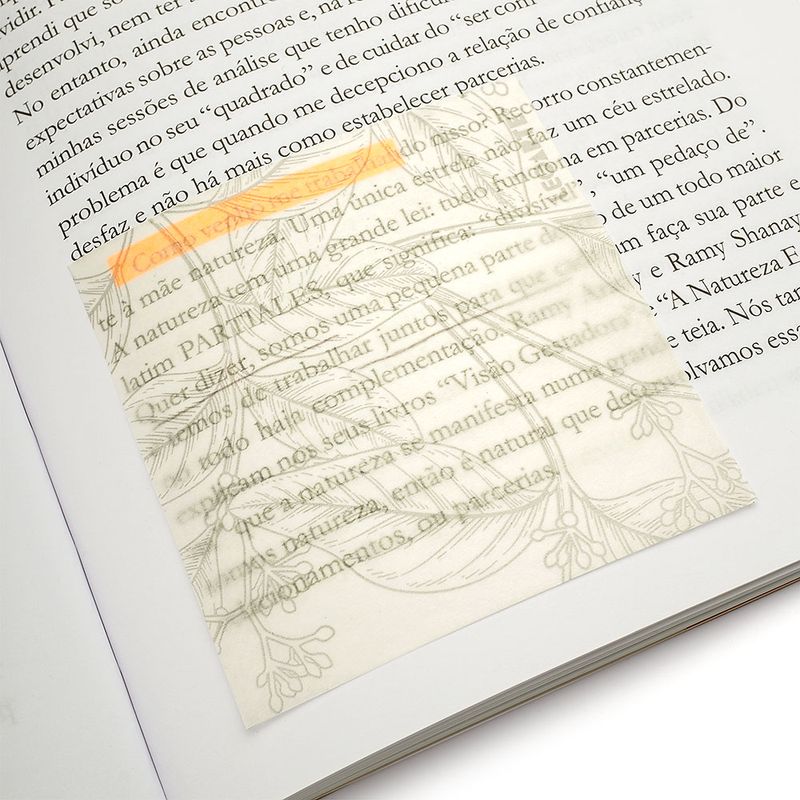 vidir.
aprendi que
desenvolvi, nem ter
No entanto, ainda
expectativas sobre as pessoas e, na
minhas sessões de análise que tenho
indivíduo no seu “quadrado” e de cuidar do “ser
problema é que quando me decepciono a relação de confiança
desfaz e não há mais como estabelecer parcerias.
Como venho me trabalhando nisso? Recorro constantemen-
te à mãe natureza. Uma única estrela não faz um céu estrelado.
A natureza tem uma grande lei: tudo funciona em parcerias. Do
latim PARTIALES, que significa: “divisível”, “um pedaço de”.
Quer dizer, somos uma pequena parte de um todo maior
temos de trabalhar juntos para que cada um faça sua parte e
o todo haja complementação. Ramy Arany e Ramy Shanay
explicam nos seus livros “Visão Gestadora” e “A Natureza
que a natureza se manifesta numa grande teia. Nós
somos natureza, então é natural que desenvolvamos
cionamentos, ou parcerias.